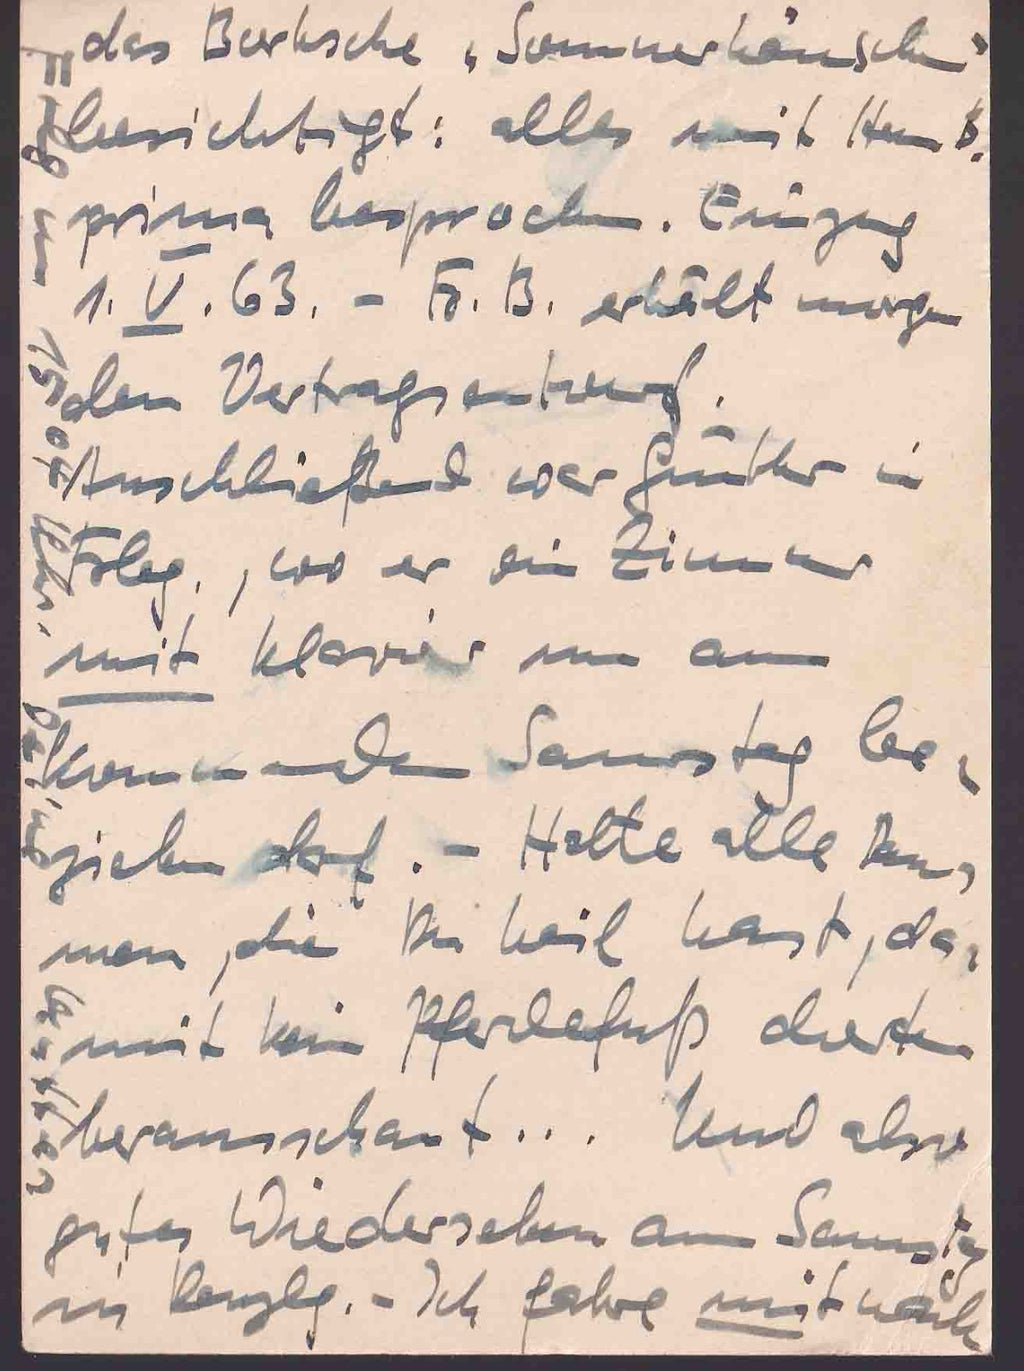 das Burksche „Sommerhäuschen“
besichtigt: alles mit Herrn B.
prima besprochen. Einzug
1. V. 63. – Fr. B. erhält morgen
den Vertragsentwurf.
Anschließend war Günther in
Frbg., wo er ein Zimmer
mit Klavier nun am
kommenden Samstag be-
ziehen darf. – Halte alle Dau-
men, die Du heil hast, da-
mit kein Pferdefuß
herausschaut... Und also
gutes Wiedersehen am Samstag
in – Ich fahre mit nach
15.07 Uhr.